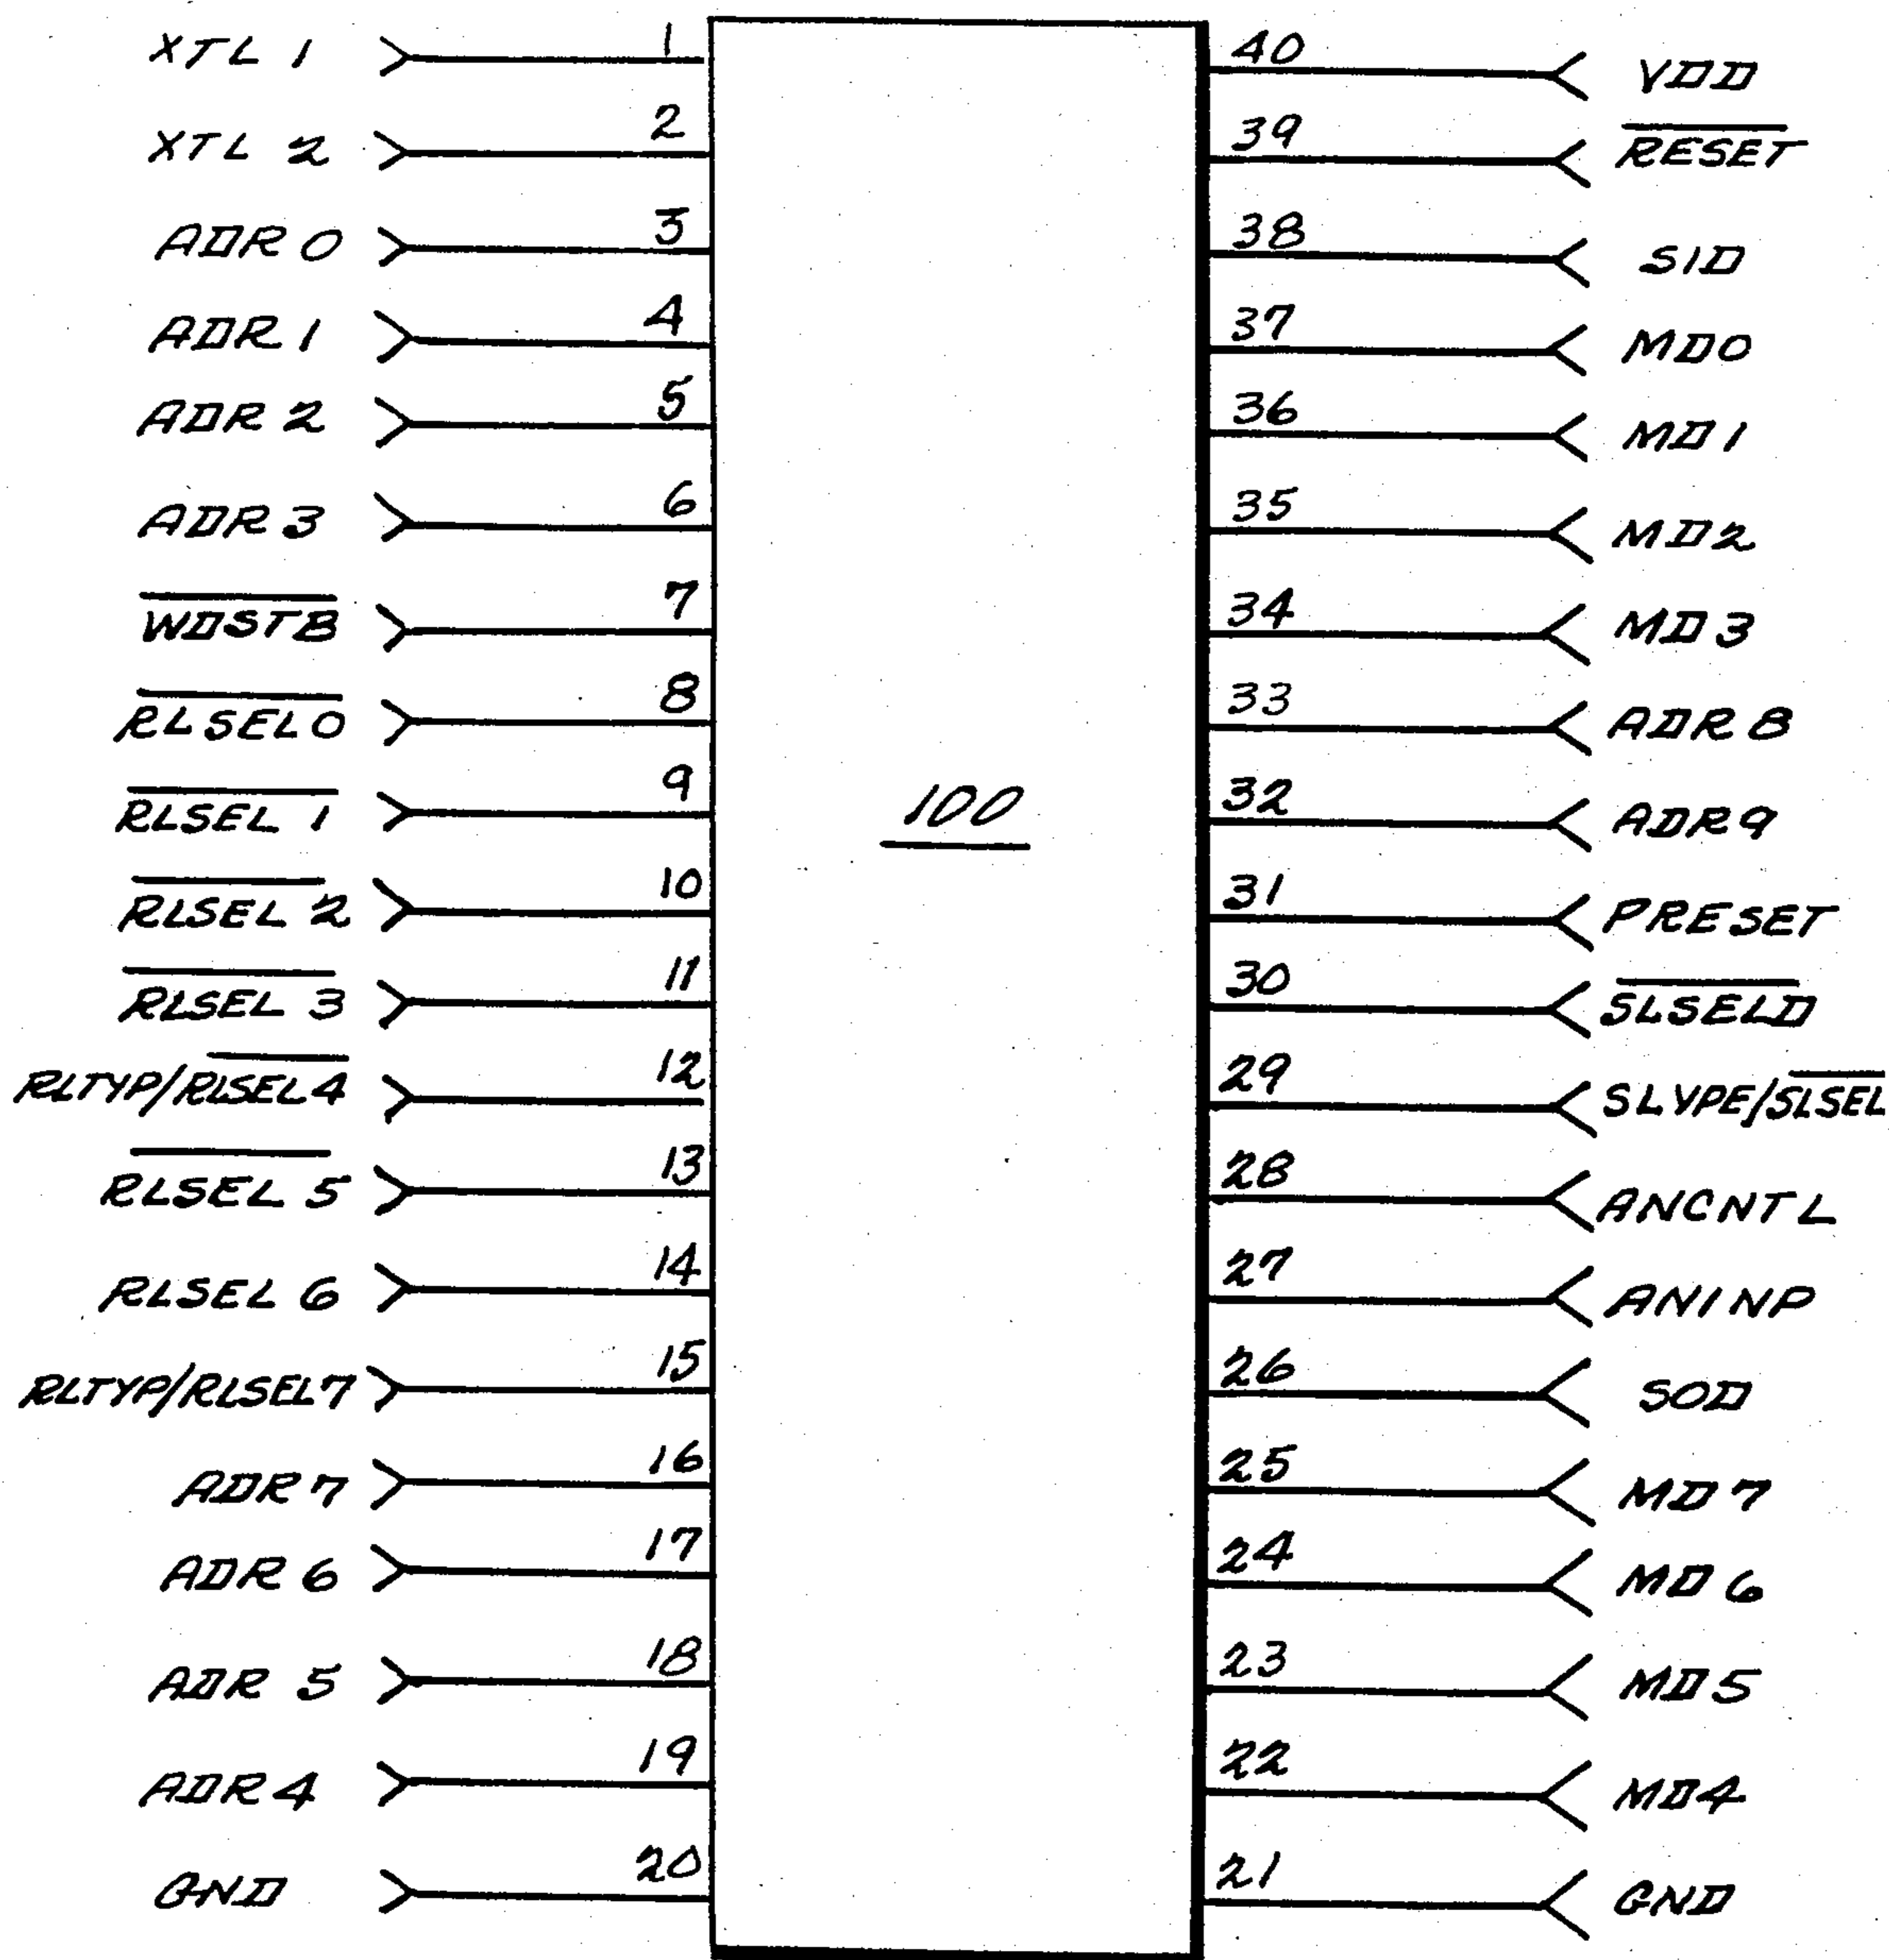 XTL 1 1
XTL 2 2
ADR 0 3
ADR 1 4
ADR 2 5
ADR 3 6
W̅D̅S̅T̅B̅ 7
R̅L̅S̅E̅L̅0̅ 8
R̅L̅S̅E̅L̅ 1̅ 9
R̅L̅S̅E̅L̅ 2̅ 10
R̅L̅S̅E̅L̅ 3̅ 11
RLTYP/R̅L̅S̅E̅L̅4̅ 12
R̅L̅S̅E̅L̅ 5̅ 13
RLSEL 6 14
RLTYP/RLSEL7 15
ADR 7 16
ADR 6 17
ADR 5 18
ADR 4 19
GND 20
100
40 VDD
39 R̅E̅S̅E̅T̅
38 SID
37 MD0
36 MD1
35 MD2
34 MD3
33 ADR 8
32 ADR9
31 PRESET
30 S̅L̅S̅E̅L̅D̅
29 SLYPE/S̅L̅S̅E̅L̅
28 ANCNTL
27 ANINP
26 SOD
25 MD7
24 MD6
23 MD5
22 MD4
21 GND